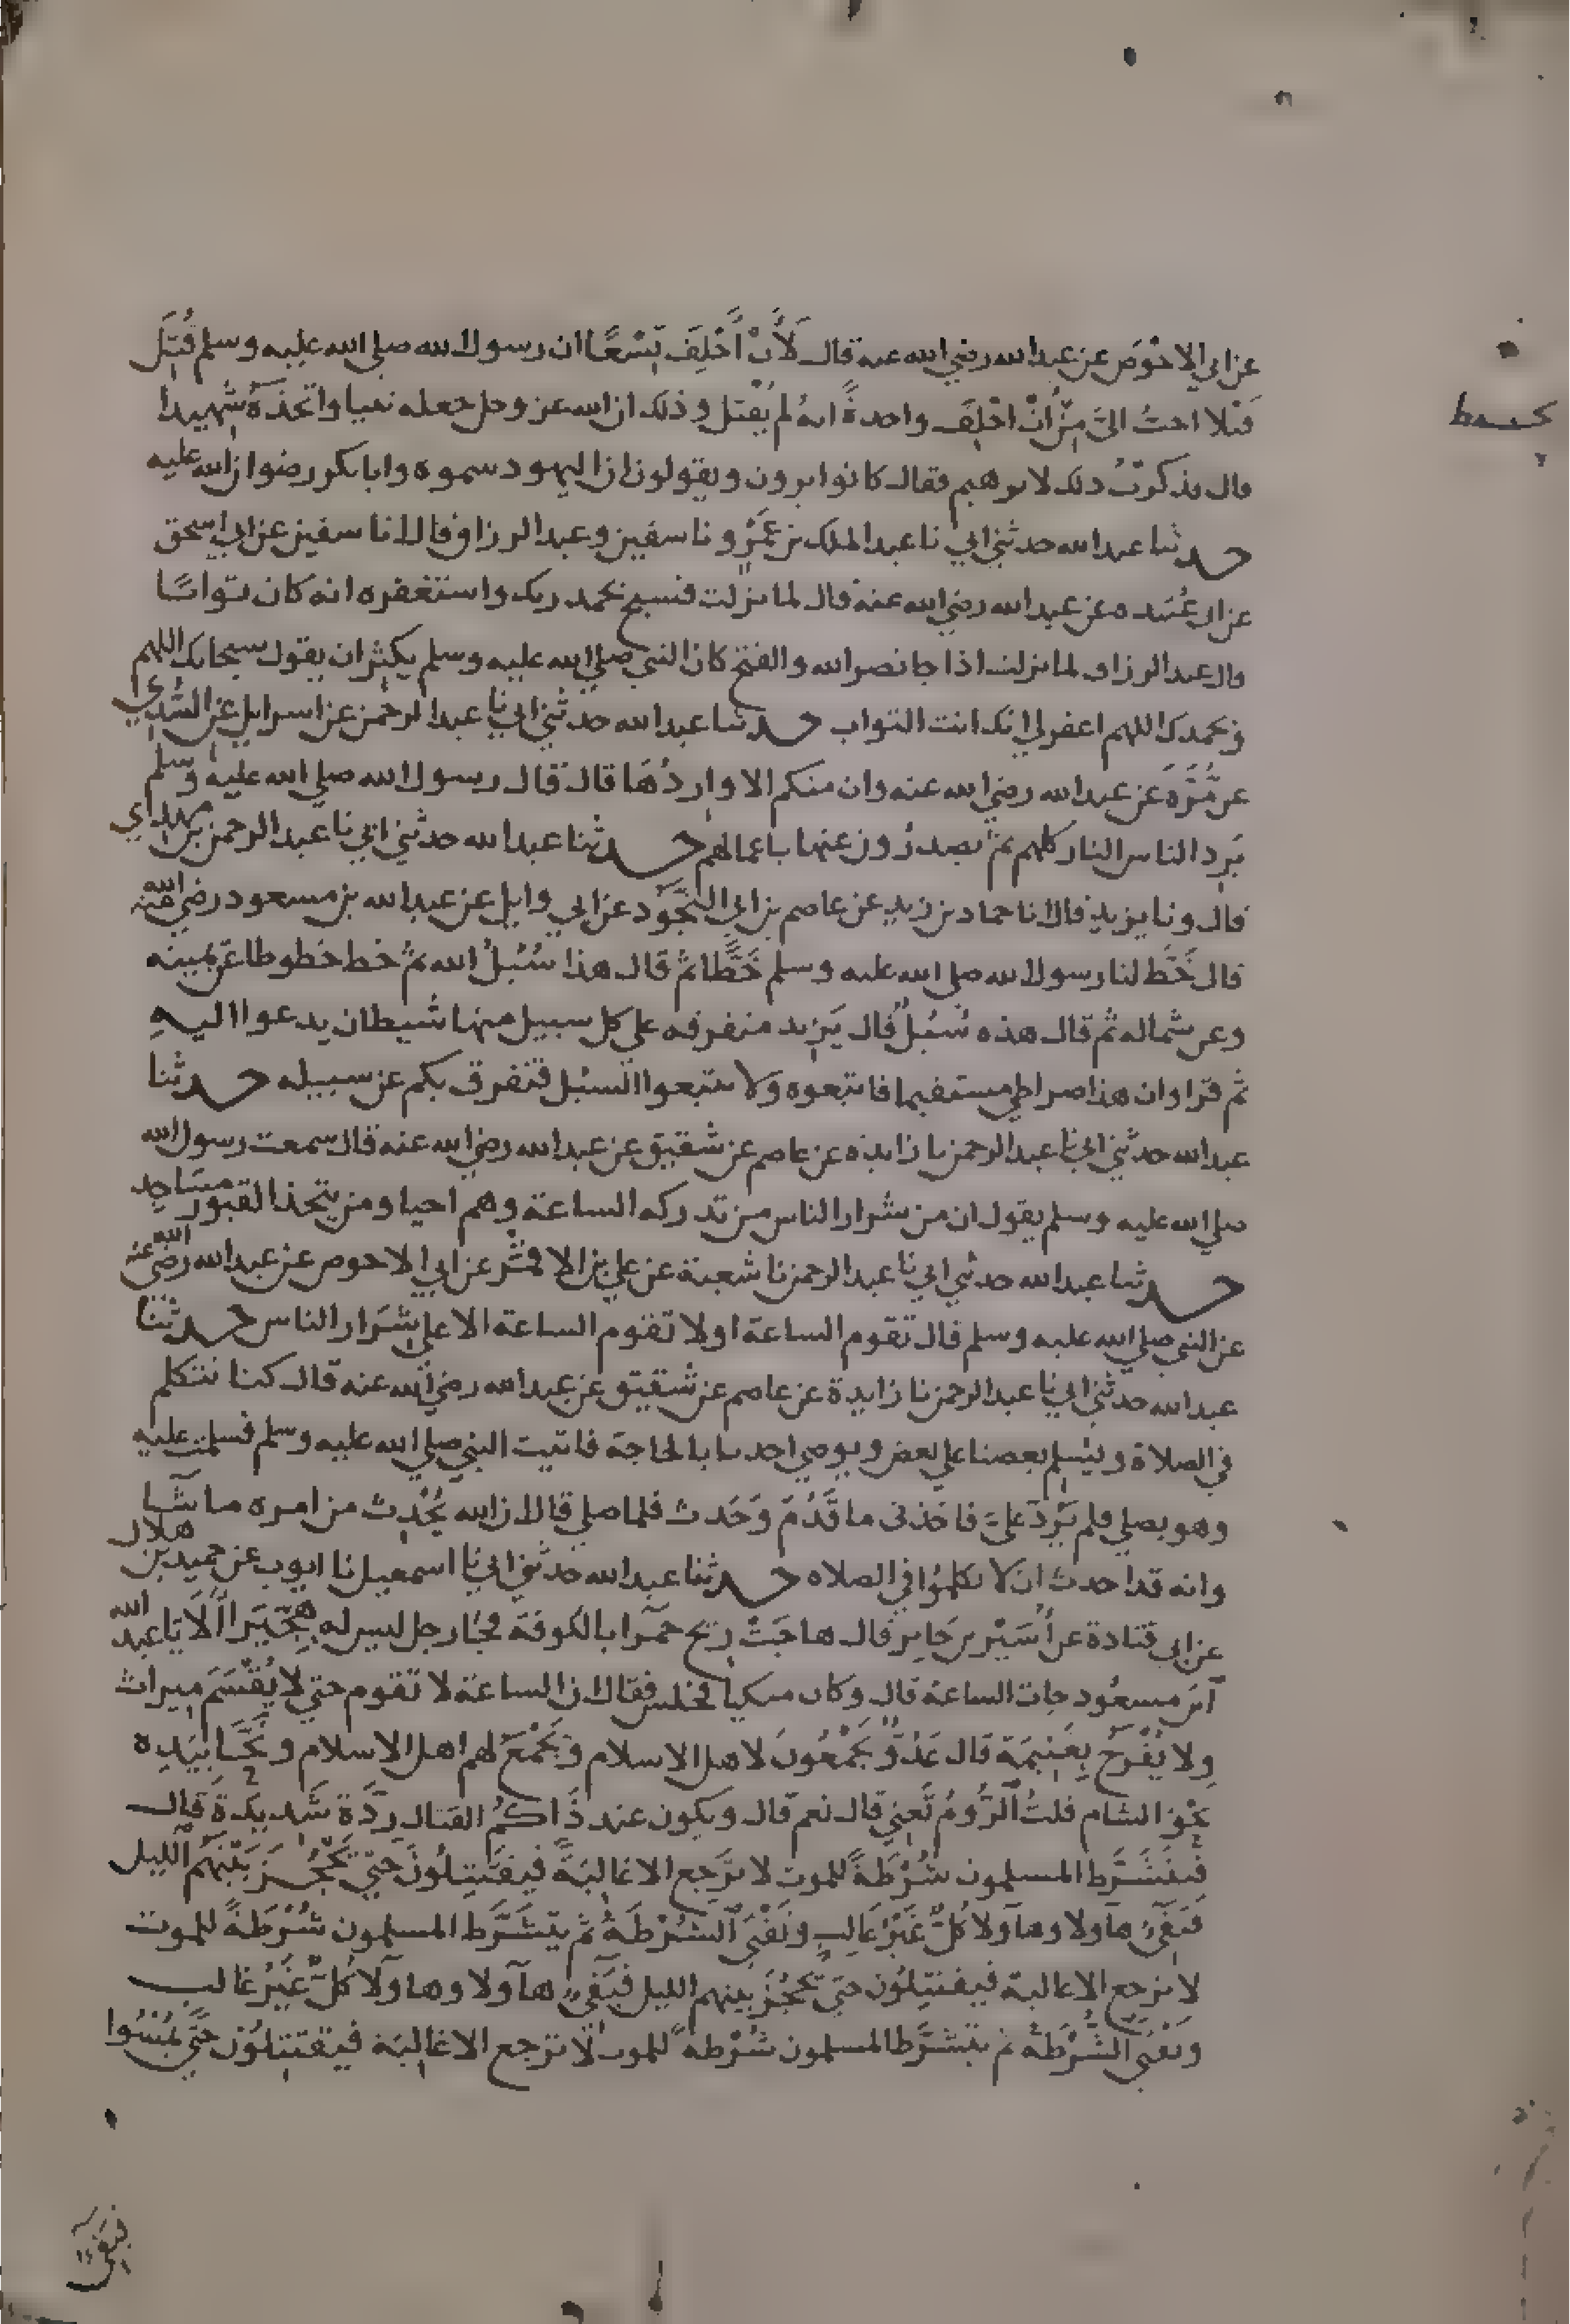 عن ابي الاحوص عن عبد الله رضي الله عنه قال لأن أحلف تسعًا ان رسول الله صلى الله عليه وسلم قُتِل
قتلا احبُّ اليَّ مِنْ أنْ احلِفَ واحدةً انه لم يُقْتل وذلك ان الله عز وجل جعله نبيا واتخذهُ شهيدا
قال فذكرتُ ذلك لابرهيم فقال كانوا يرون ويقولون ان اليهود سموه وابا بكر رضوان الله عليه
حدثنا عبد الله حدثني ابي نا عبد الملك بن عَمْرو نا سفين وعبد الرزاق قال انا سفين عن ابي اسحق
عن ابي عُبَيده عن عبد الله رضي الله عنه قال لما نزلت فسبح بحمد ربك واستغفره انه كان توابًا
قال عبد الرزاق لما نزلت اذا جا نصر الله والفتح كان النبي صلى الله عليه وسلم يكثر ان يقول سبحانك اللهم
وبحمدك اللهم اغفر لي انك انت التواب حدثنا عبد الله حدثني ابي نا عبد الرحمن عن اسرايل عن السُّدِّي
عن مُرَّةَ عن عبد الله رضي الله عنه وان منكم الا واردُهَا قال قال رسول الله صلى الله عليه وسلم
يَرِد الناس النار كلهم ثم يصدُرون عنها باعمالهم حدثنا عبد الله حدثني ابي نا عبد الرحمن بن مهدي
قال ونا يزيد قال انا حماد بن زيد عن عاصم بن ابي النَّجُود عن ابي وايل عن عبد الله بن مسعود رضي الله عنه
قال خَطَّ لنا رسول الله صلى الله عليه وسلم خَطًّا ثم قال هذا سُبُلُ الله ثم خط خطوطا عن يمينه
وعن شماله ثم قال هذه سُبُلٌ قال يَزِيد متفرقه على كل سبيل منها شيطان يدعوا اليهِ
ثم قرا وان هذا صراطي مستقيما فاتبعوه ولا تتبعوا السُبُل فتفرق بكم عن سبيله حدثنا
عبد الله حدثني ابي نا عبد الرحمن نا زايده عن عاصم عن شقيق عن عبد الله رضي الله عنه قال سمعت رسول الله
صلى الله عليه وسلم يقول ان من شرار الناس من تدركه الساعة وهم احيا ومن يتخذ القبور مساجد
حدثنا عبد الله حدثني ابي نا عبد الرحمن نا شعبة عن علي بن الاقمر عن ابي الاحوص عن عبد الله رضي الله عنه
عن النبي صلى الله عليه وسلم قال تقوم الساعة او لا تقوم الساعة الا على شَرار الناس حدثنا
عبد الله حدثني ابي نا عبد الرحمن نا زايدة عن عاصم عن شقيق عن عبد الله رضي الله عنه قال كنا نتكلم
في الصلاة ويُسلم بعضنا على بعض ويوصي احدنا بالحاجة فاتيت النبي صلى الله عليه وسلم فسلمت عليه
وهو يصلي فلم يَرُدّ عليّ فاخذني ما قَدُمَ وَحَدث فلما صلى قال ان الله يُحْدِث من امره ما شا
وانه قد احدث ان لا تكلموا في الصلاه حدثنا عبد الله حدثني ابي نا اسمعيل نا ايوب عن حميد بن هلال
عن ابي قتادة عن أُسَيْر بن جَابِر قال هاجَتْ ريح حمرا بالكوفة فجا رجل ليس له هِجِّيَرا الَّا يا عبد الله
بن مسعُود جات الساعة قال وكان متكيا فجلس فقال ان الساعة لا تقوم حتى لا يُقْسَم ميراث
ولا يُفْرح بغَنِيمَة قال عَدُوٌّ يجْمَعُونَ لاهل الاسلام ويَجْمَعُ لهم اهل الاسلام ونحَّا بيَدِه
نحْوَ الشام قلتُ الرُّومُ تَعني قال نعم قال ويكون عند ذَاكُم القتال رِدَّة شَديدَة قال
فيَتَشَرَّط المسلمون شُرْطةً للموت لا ترْجع الا غالبَةً فيقتَتِلُونَ حتى تحْجُزَ بَيْنهم الليل
فيَفيءُ هآولا وهآولا كلٌّ غَيْرُ غَالِبٍ وتَفْنَى الشُرْطَةُ ثم يتشَرَّط المسلمون شُرْطَةً للموت
لا ترجع الا غالبة فيقتتِلُون حتى تحْجُزَ بينهم الليل فيَفيءُ هآولا وهاولا كُلٌّ غَيْرُ غالب
وتفْنَى الشُّرْطَةُ ثم يتشَرَّط المسلمون شُرْطةً للموت لا ترجع الا غالبَة فيقتتِلُون حتى يُمْسُوا
فيَفيءُ